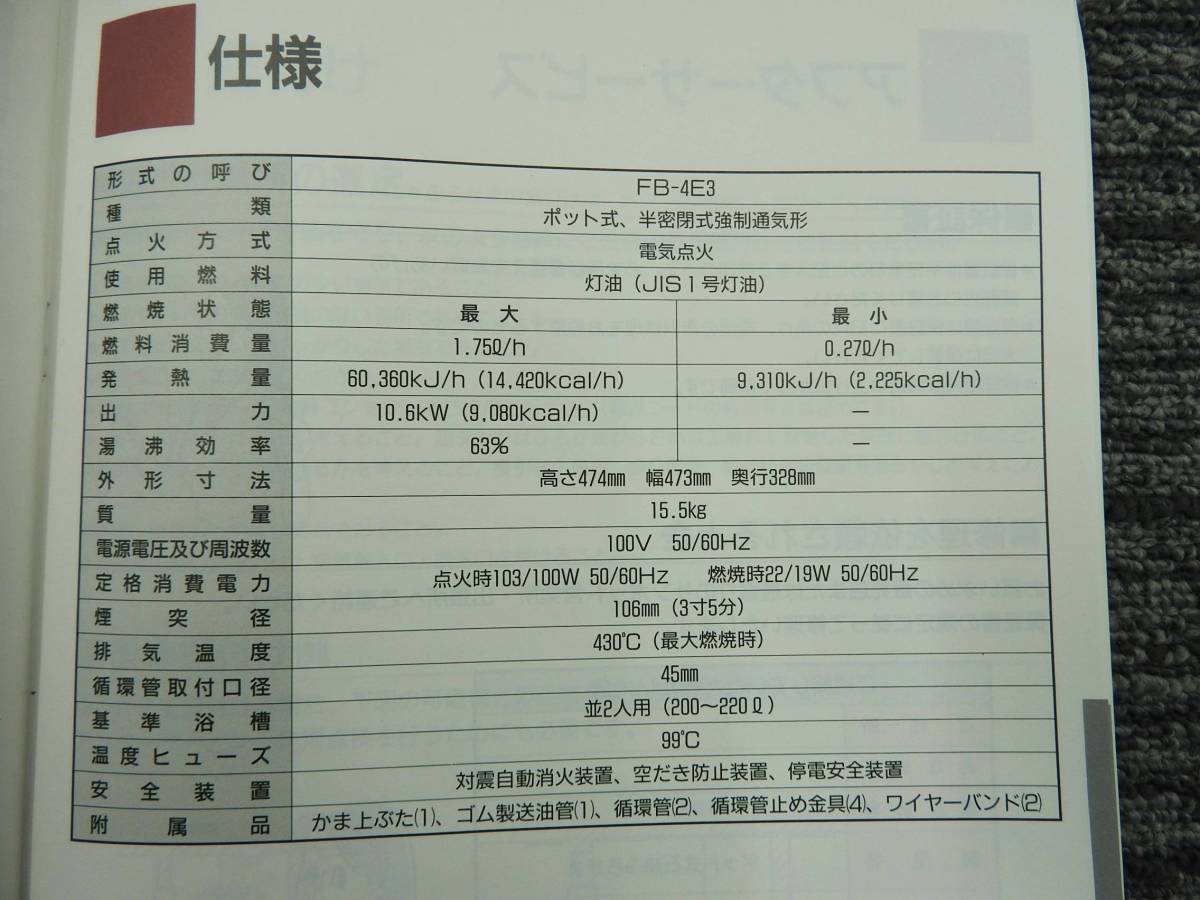 仕様
形式の呼び FB-4E3
種類 ポット式、半密閉式強制通気形
点火方式 電気点火
使用燃料 灯油（JIS1号灯油）
燃焼状態 最大 最小
燃料消費量 1.75ℓ/h 0.27ℓ/h
発熱量 60,360kJ/h（14,420kcal/h） 9,310kJ/h（2,225kcal/h）
出力 10.6kW（9,080kcal/h） ―
湯沸効率 63% ―
外形寸法 高さ474㎜ 幅473㎜ 奥行328㎜
質量 15.5kg
電源電圧及び周波数 100V 50/60Hz
定格消費電力 点火時103/100W 50/60Hz 燃焼時22/19W 50/60Hz
煙突径 106㎜（3寸5分）
排気温度 430℃（最大燃焼時）
循環管取付口径 45㎜
基準浴槽 並2人用（200～220ℓ）
温度ヒューズ 99℃
安全装置 対震自動消火装置、空だき防止装置、停電安全装置
附属品 かま上ぶた⑴、ゴム製送油管⑴、循環管⑵、循環管止め金具⑷、ワイヤーバンド⑵
アフターサービス